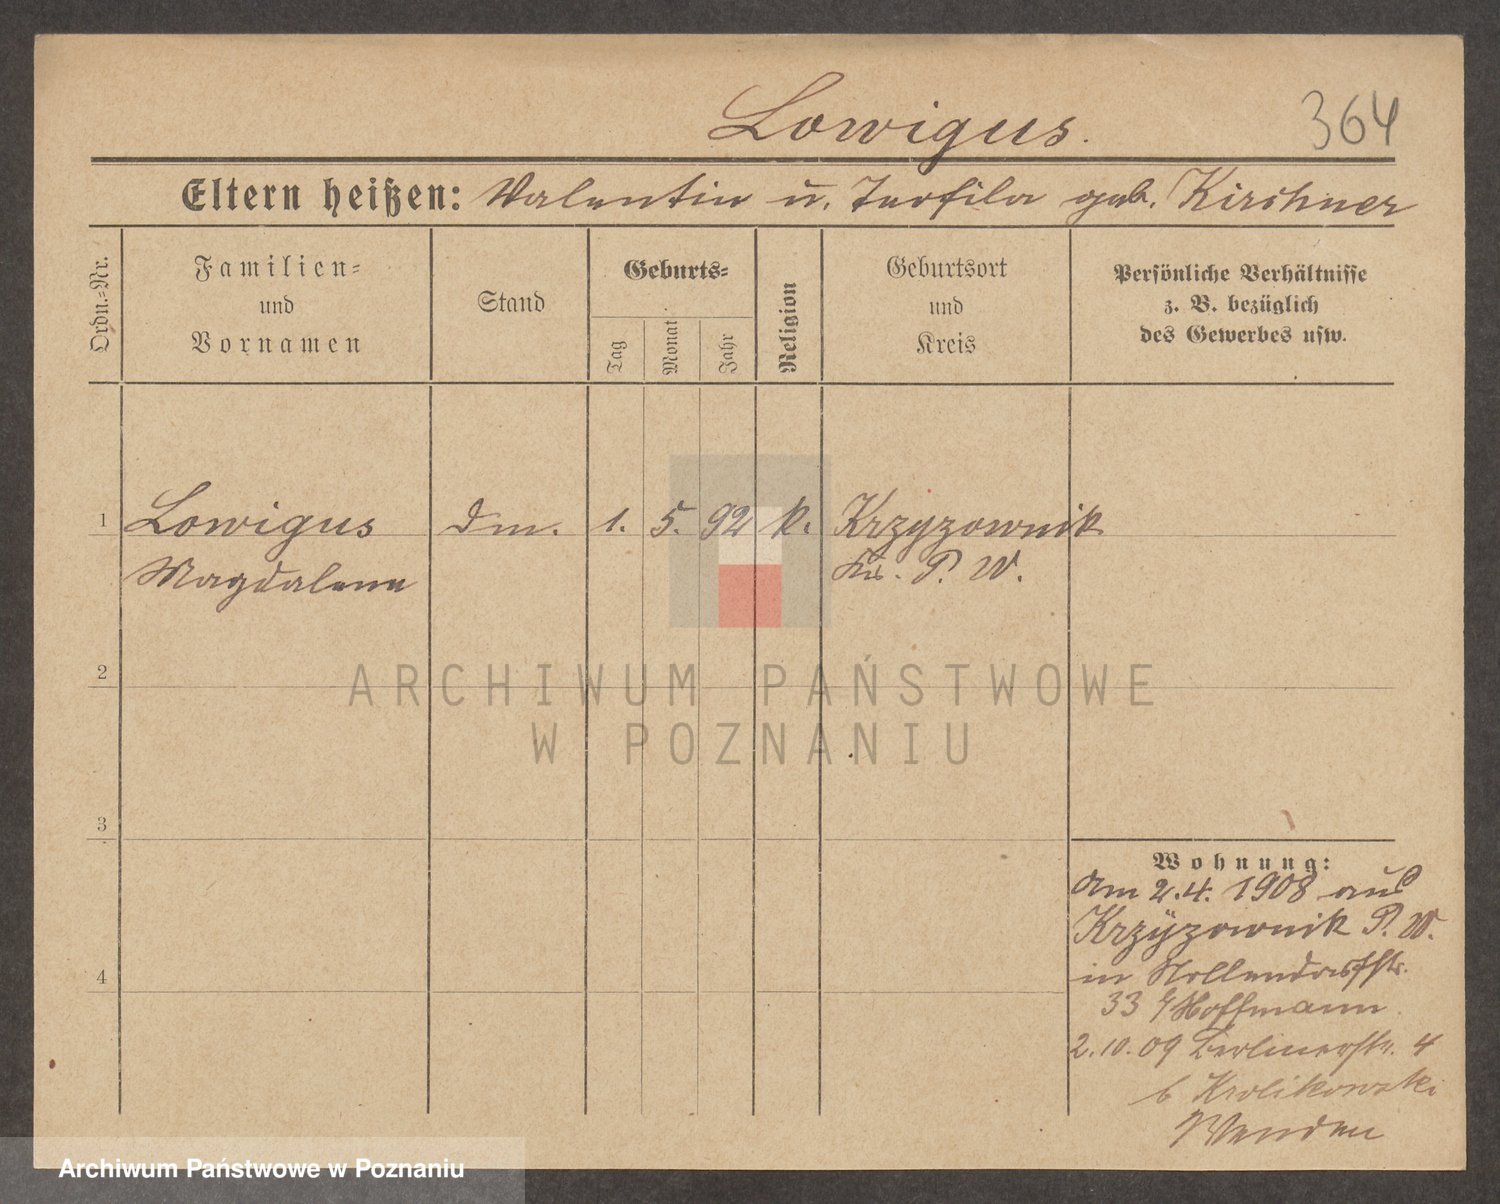 Lowigus.
364
Eltern heißen: Valentin u. Teofila geb. Kirschner
Ordn.-Nr.
Familien-
und
Vornamen
Stand
Geburts-
Tag
Monat
Jahr
Religion
Geburtsort
und
Kreis
Persönliche Verhältnisse
z. B. bezüglich
des Gewerbes usw.
1 Lowigus Dm. 1. 5. 92 k. Krzyzownik
Magdalena Krs. P. W.
2
ARCHIWUM PAŃSTWOWE
W POZNANIU
3
4
Wohnung:
Am 2.4. 1908 aus
Krzÿzownik P. W.
in Nollendorfstr.
33 b/Hoffmann
2.10.09 Berlinerstr. 4
b Krolikowski
Archiwum Państwowe w Poznaniu